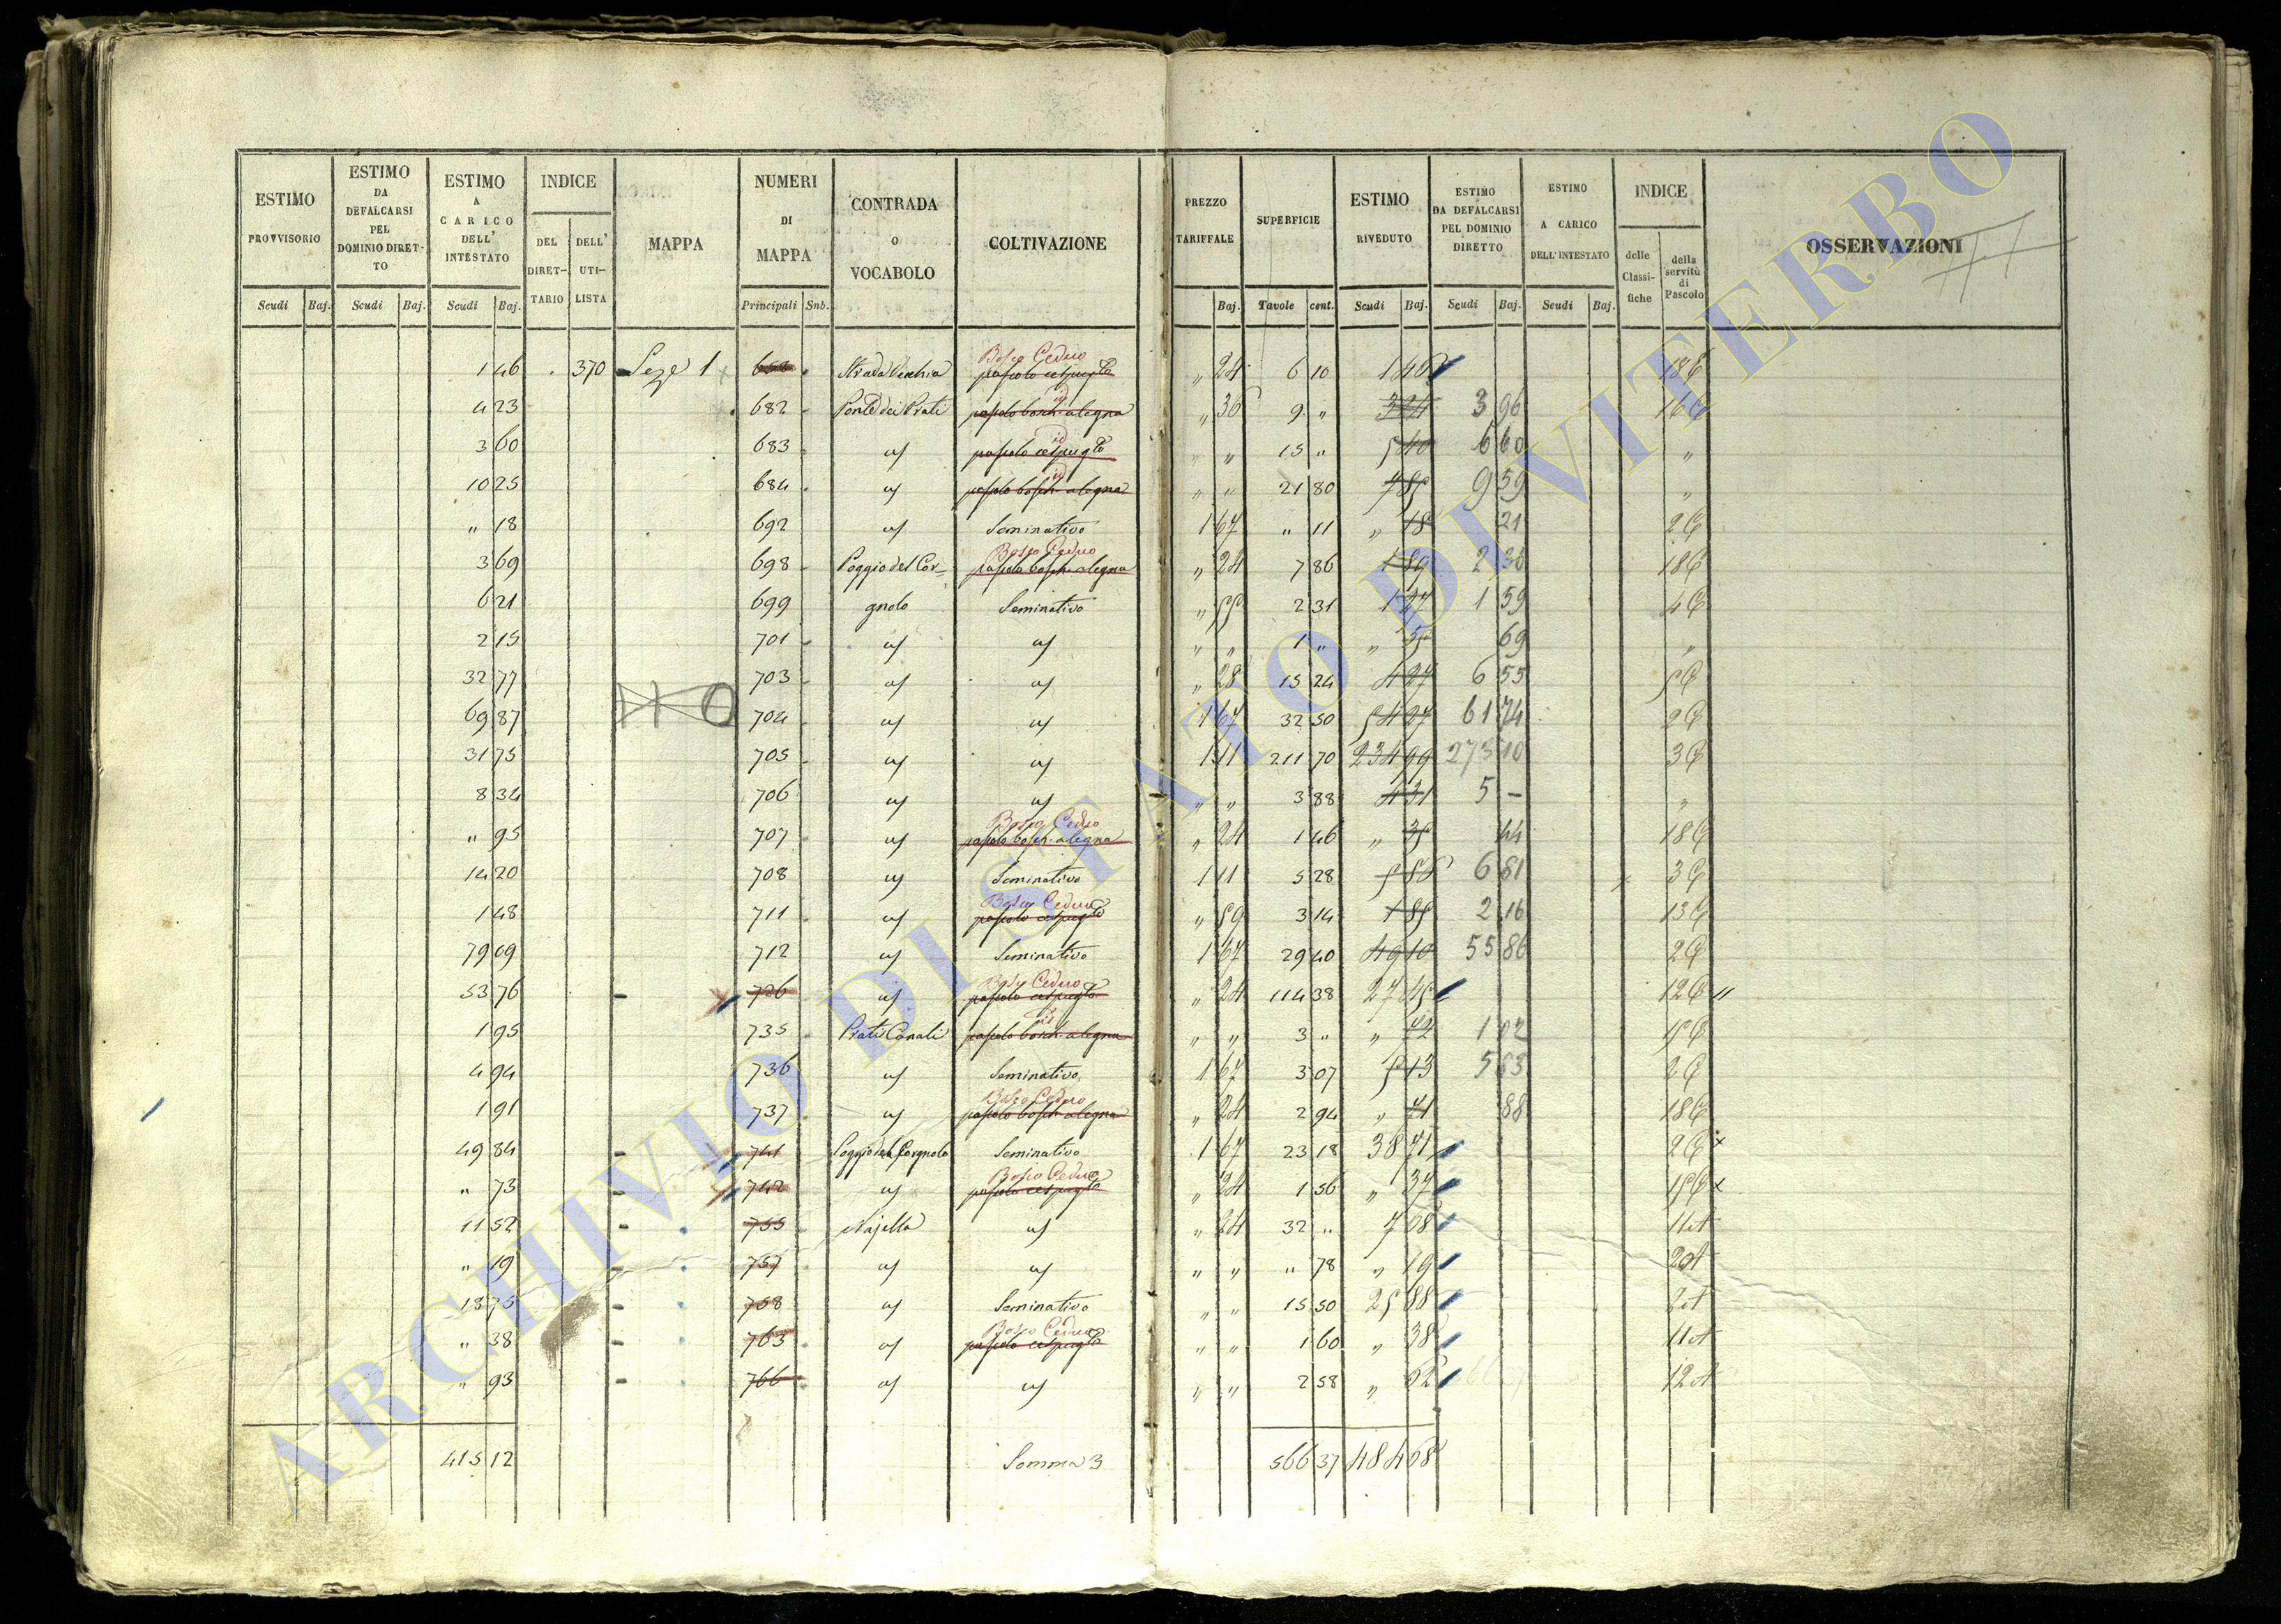 ESTIMO PROVVISORIO | ESTIMO DA DEFALCARSI PEL DOMINIO DIRET-TO | ESTIMO A CARICO DELL' INTESTATO | INDICE | MAPPA | NUMERI DI MAPPA | CONTRADA O VOCABOLO | COLTIVAZIONE | PREZZO TARIFFALE | SUPERFICIE | ESTIMO RIVEDUTO | ESTIMO DA DEFALCARSI PEL DOMINIO DIRETTO | ESTIMO A CARICO DELL'INTESTATO | INDICE | OSSERVAZIONI
DEL DIRET-TARIO | DELL' UTI-LISTA | delle Classi-fiche | della servitù di Pascolo
Scudi | Baj. | Scudi | Baj. | Scudi | Baj. | Principali | Snb. | Baj. | Tavole | cent. | Scudi | Baj. | Scudi | Baj. | Scudi | Baj.
Bosco Ceduo
1 46 | 370 | Seze 1 | 658 | Strada Vecchia | pascolo cespugto | " 24 | 6 10 | 1 46 | 18 C
id
4 23 | 682 | Ponte dei Prati | pascolo bosch. a legna | " 36 | 9 " | 3 24 | 3 96 | 16 C
id
3 60 | 683 | us | pascolo cespugto | " " | 15 " | 5 40 | 6 60 | "
id
10 25 | 684 | us | pascolo bosch. a legna | " " | 21 80 | 7 85 | 9 59 | "
" 18 | 692 | us | Seminativo | 1 67 | " 11 | " 18 | 21 | 2 C
Bosco Ceduo
3 69 | 698 | Poggio del Cor= | pascolo bosch. a legna | " 24 | 7 86 | 1 89 | 2 36 | 18 C
6 21 | 699 | gnolo | Seminativo | " 55 | 2 31 | 1 27 | 1 59 | 4 C
2 15 | 701 | us | us | " " | 1 " | " 55 | 69 | "
32 77 | 703 | us | us | " 28 | 15 24 | 4 27 | 6 55 | 5 C
69 87 | 704 | us | us | 1 67 | 32 50 | 54 27 | 61 74 | 2 C
31 75 | 705 | us | us | 1 11 | 211 70 | 234 99 | 273 10 | 3 C
8 34 | 706 | us | us | " " | 3 88 | 4 31 | 5 - | "
Bosco Ceduo
" 95 | 707 | us | pascolo bosch. a legna | " 24 | 1 46 | " 35 | 44 | 18 C
14 20 | 708 | us | Seminativo | 1 11 | 5 28 | 5 86 | 6 81 | 3 C
Bosco Ceduo
1 48 | 711 | us | pascolo cespugto | " 59 | 3 14 | 1 85 | 2 16 | 13 C
79 09 | 712 | us | Seminativo | 1 67 | 29 40 | 49 10 | 55 86 | 2 C
Bosco Ceduo
53 76 | 726 | us | pascolo cespugto | " 24 | 114 38 | 27 45 | 12 C
id
1 95 | 735 | Prati Canali | pascolo bosch. a legna | " " | 3 " | " 72 | 1 02 | 15 C
4 94 | 736 | us | Seminativo | 1 67 | 3 07 | 5 13 | 5 83 | 2 C
Bosco Ceduo
1 91 | 737 | us | pascolo bosch. a legna | " 24 | 2 94 | " 71 | 88 | 18 C
49 84 | 741 | Poggio del Corgnolo | Seminativo | 1 67 | 23 18 | 38 71 | 2 C
Bosco Ceduo
" 73 | 742 | us | pascolo cespugto | " 24 | 1 56 | " 37 | 15 C
11 52 | 755 | Najella | us | " 24 | 32 " | 7 68 | 11 A
" 19 | 757 | us | us | " " | " 78 | " 19 | 20 A
18 75 | 758 | us | Seminativo | " " | 15 50 | 25 88 | 2 A
Bosco Ceduo
" 38 | 763 | us | pascolo cespugto | " " | 1 60 | " 38 | 11 A
" 93 | 766 | us | us | " " | 2 58 | " 62 | 12 A
415 12 | Somma 3 | 566 37 | 484 68
ARCHIVIO DI STATO DI VITERBO